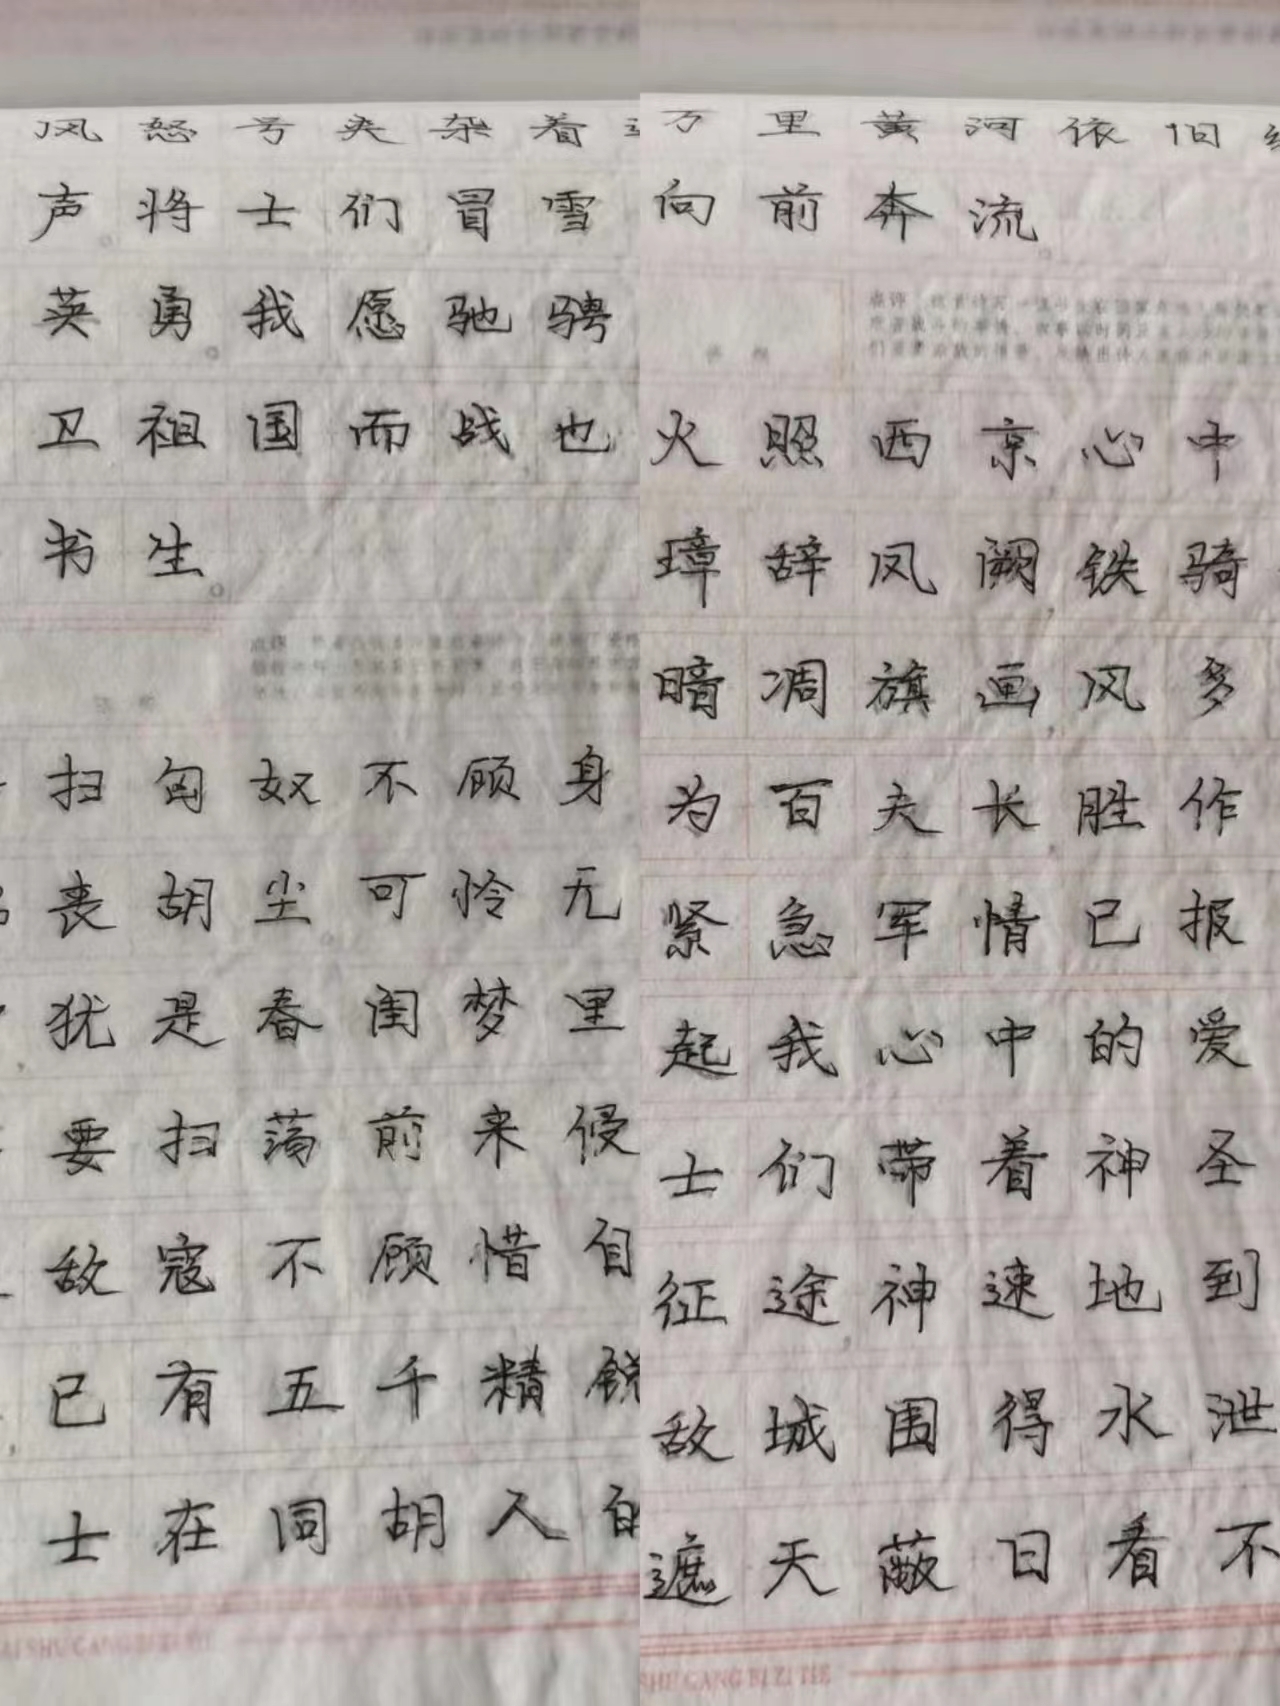 风怒号夹杂着
声。将士们冒雪
英勇。我愿驰骋
卫祖国而战,也
书生。
点评
扫匈奴不顾身
丧胡尘。可怜无
犹是春闺梦里
要扫荡前来侵
敌寇,不顾惜自
已有五千精锐
士在同胡人的
SHU GANG BI ZI TIE
万里黄河依旧
向前奔流。
点评
火照西京,心中
璋辞凤阙,铁骑
暗凋旗画,风多
为百夫长,胜作
紧急军情已报
起我心中的爱
士们带着神圣
征途,神速地到
敌城围得水泄
遮天蔽日看不
SHU GANG BI ZI TIE